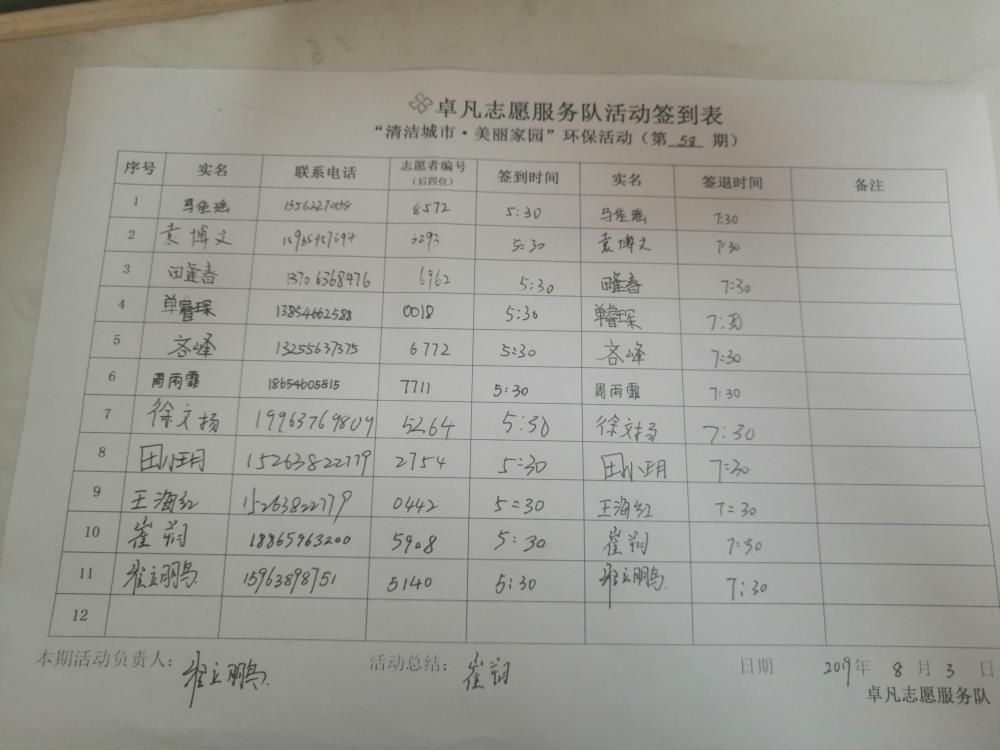 卓凡志愿服务队活动签到表
“清洁城市·美丽家园”环保活动(第 58 期)
序号 实名 联系电话 志愿者编号(后四位) 签到时间 实名 签退时间 备注
1 马佳瑶 8572 5:30 马佳瑶 7:30
2 袁博文 3293 5:30 袁博文 7:30
3 13706368476 6962 5:30 7:30
4 单睿琛 13854662588 0018 5:30 单睿琛 7:30
5 峰 13255637375 6772 5:30 峰 7:30
6 周雨霏 18654605815 7711 5:30 周雨霏 7:30
7 徐文扬 19963769809 5264 5:30 徐文扬 7:30
8 田小玥 15263822779 2754 5:30 田小玥 7:30
9 王海红 15263822779 0442 5:30 王海红 7:30
10 崔 18865963200 5908 5:30 崔 7:30
11 翟立鹏 15963898751 5140 5:30 翟立鹏 7:30
12
本期活动负责人: 翟立鹏 活动总结: 崔 日期 2019年 8 月 3 日
卓凡志愿服务队